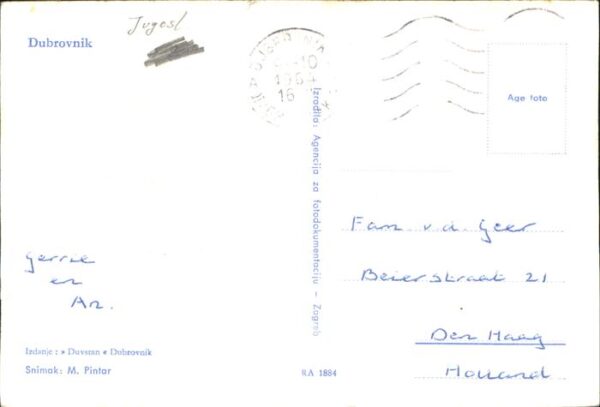 Jugosl
Dubrovnik
10
1964
16
Age foto
Izradila: Agencija za fotodokumentaciju – Zagreb
Fam. v.d. Geer
Beierstraat 21
Den Haag
Holland
Gerrie
en
An.
Izdanje: » Duvsran « Dubrovnik
Snimak: M. Pintar
RA 1884